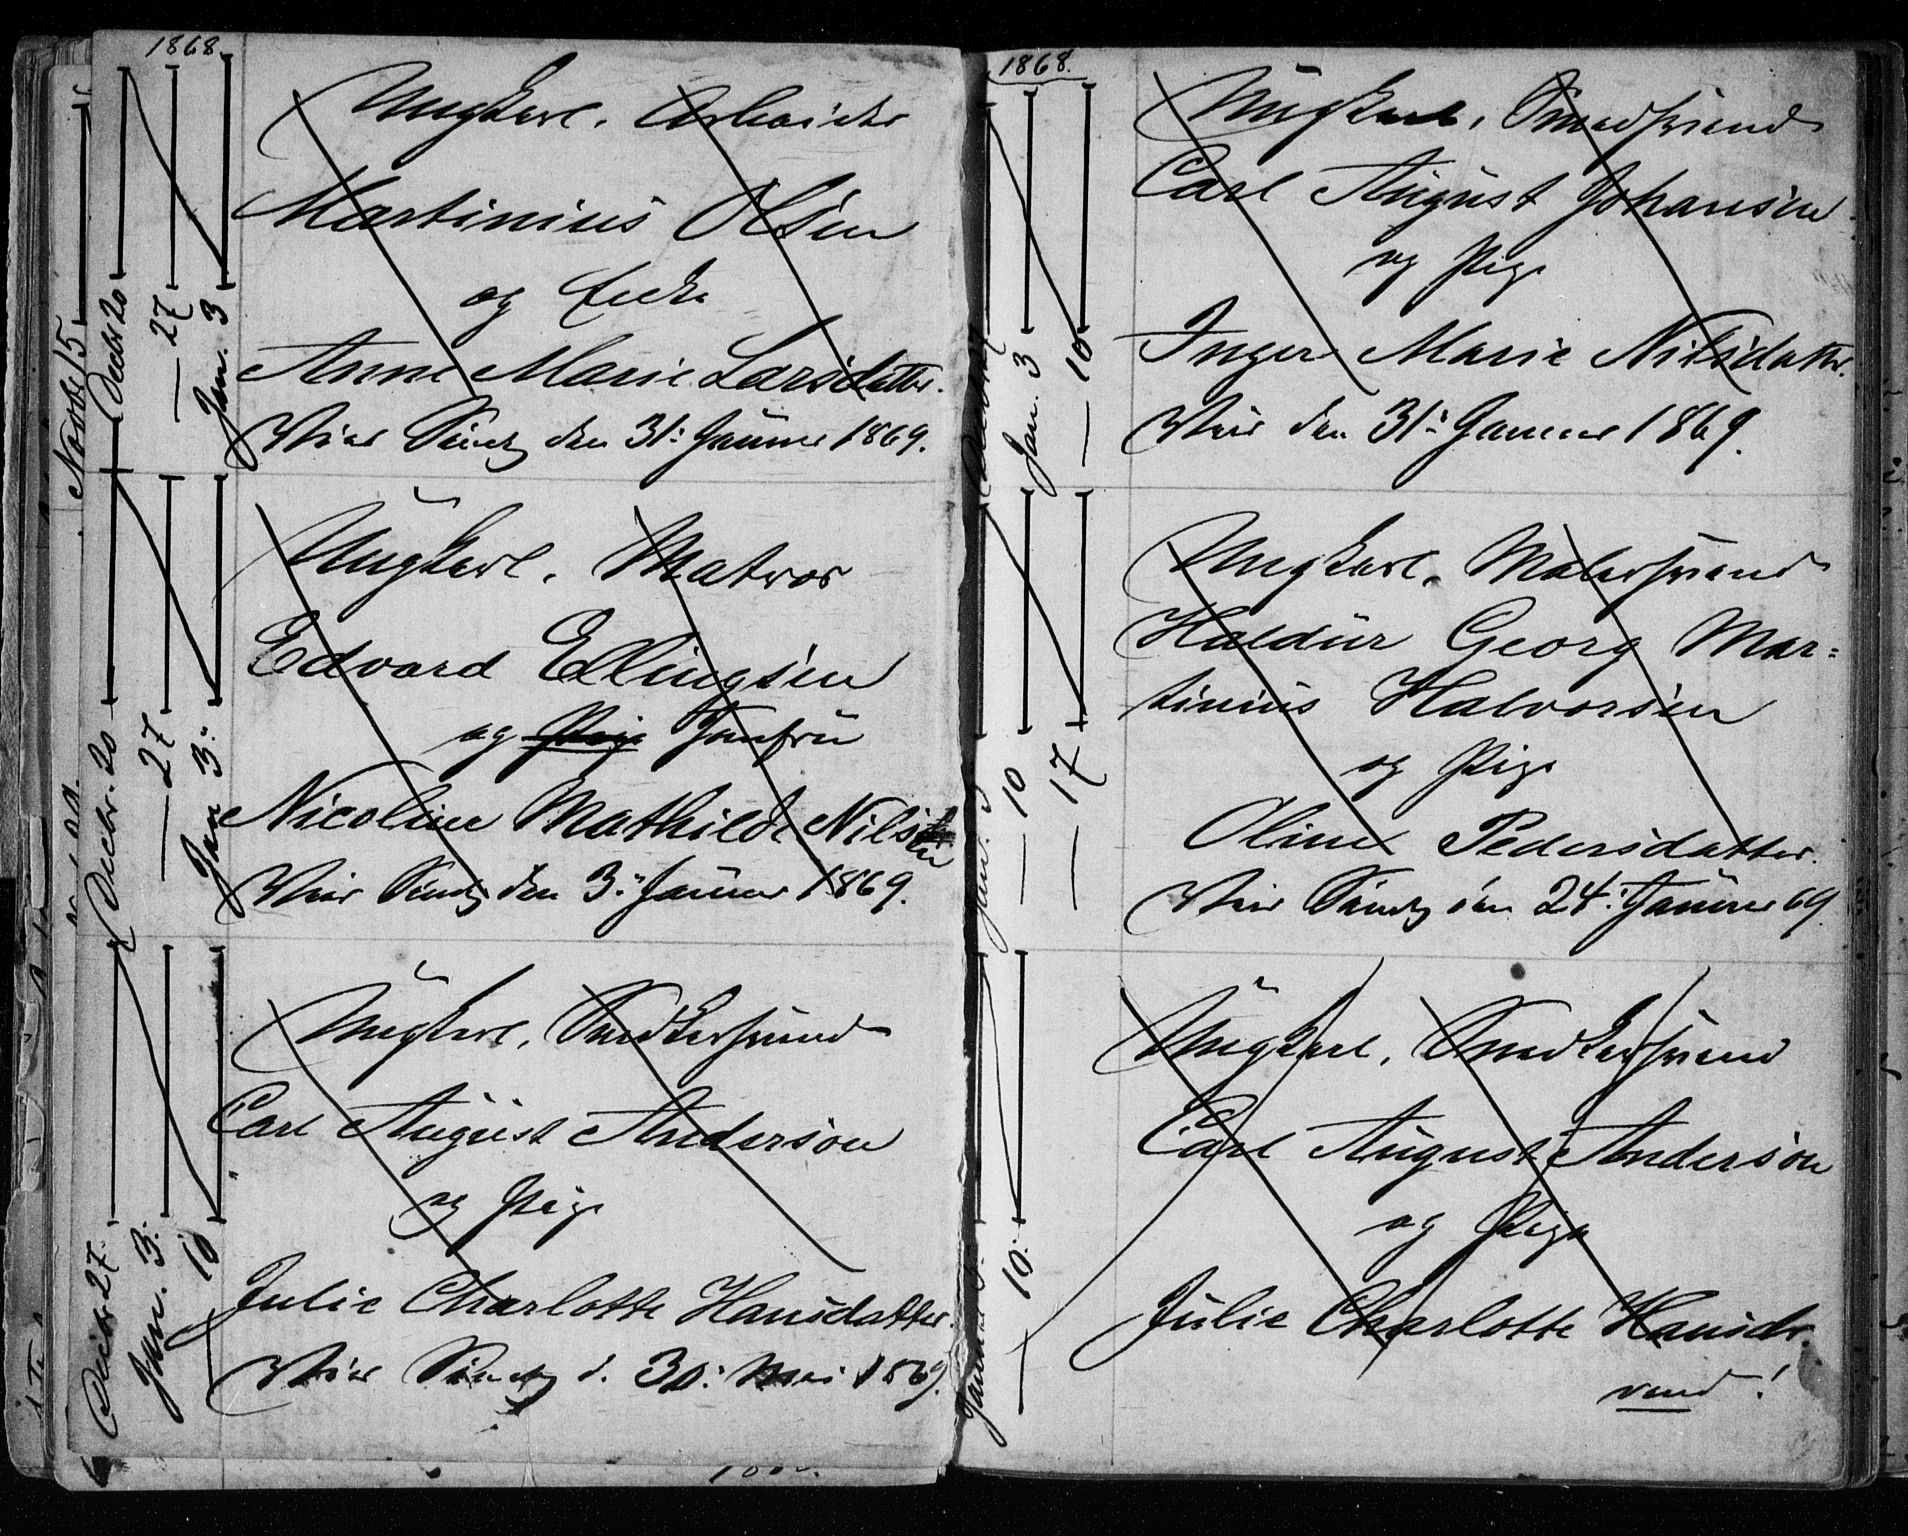 1868.
Ungkarl. Arbeider
Martinius Olsen
og Enke
Anne Marie Larsdatter.
Viet Søndg den 31: Januar 1869.
Decbr 20
— 27
Jan. 3
Ungkarl. Matros
Edvard Ellingsen
og Pige Jomfru
Nicoline Mathilde Nilsen
Viet Søndg den 3: Januar 1869.
Decbr. 20
— 27
Jan 3:
Ungkarl, Snedkersvend
Carl August Anderson
og Pige
Julie Charlotte Hansdatter.
Viet Søndg d. 30: Mai 1869.
Decbr 27.
Jan. 3:
10
Novbr 15
1868.
Ungkarl, Smedsvend
Carl August Johansen
og Pige
Inger Marie Nilsdatter.
Viet den 31: Januar 1869.
Jan. 3
— 10
Ungkarl. Malersvend
Haldur Georg Mar=
tinius Halvorsen
og Pige
Oline Pedersdatter.
Viet Søndg den 24: Januar 69
Jan. 3
— 10
— 17
Ungkarl, Snedkersvend
Carl August Anderson
og Pige
Julie Charlotte Hansdr.
vend!
Januar 3.
10: